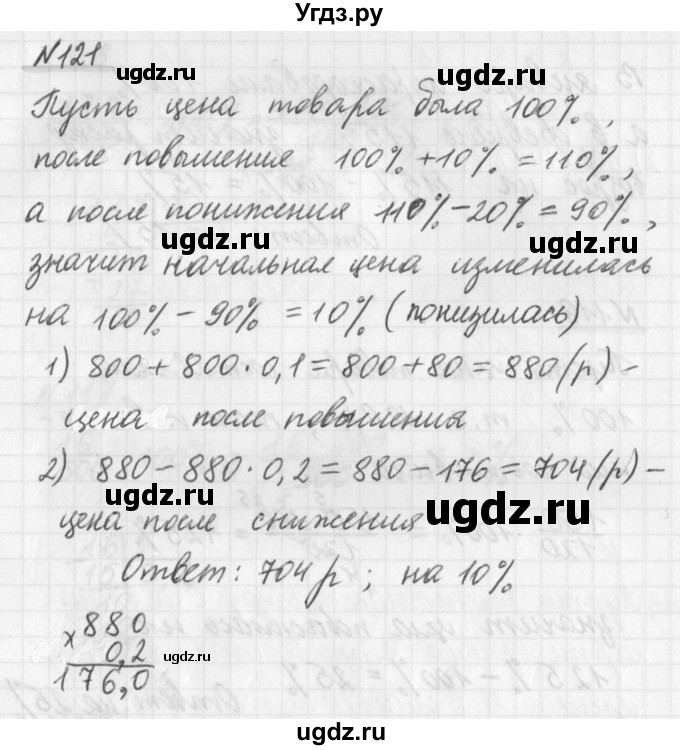 Угдз.ру
N121
ugdz.ru ugdz.ru
Пусть цена товара была 100%,
после повышения 100% + 10% = 110%,
а после понижения 110% - 20% = 90%,
ugdz.ru ugdz.ru
значит начальная цена изменилась
на 100% - 90% = 10% (понизилась)
ugdz.ru
1) 800 + 800 · 0,1 = 800 + 80 = 880 (р) -
цена после повышения.
ugdz.ru
2) 880 - 880 · 0,2 = 880 - 176 = 704 (р) -
ugdz.ru
цена после снижения
ugdz.ru
Ответ: 704 р ; на 10%
× 880
0,2
ugdz.ru
176,0
ugdz.ru